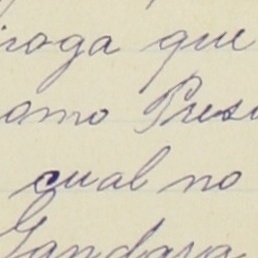 roga que
omo Presi
cual no
Gandara